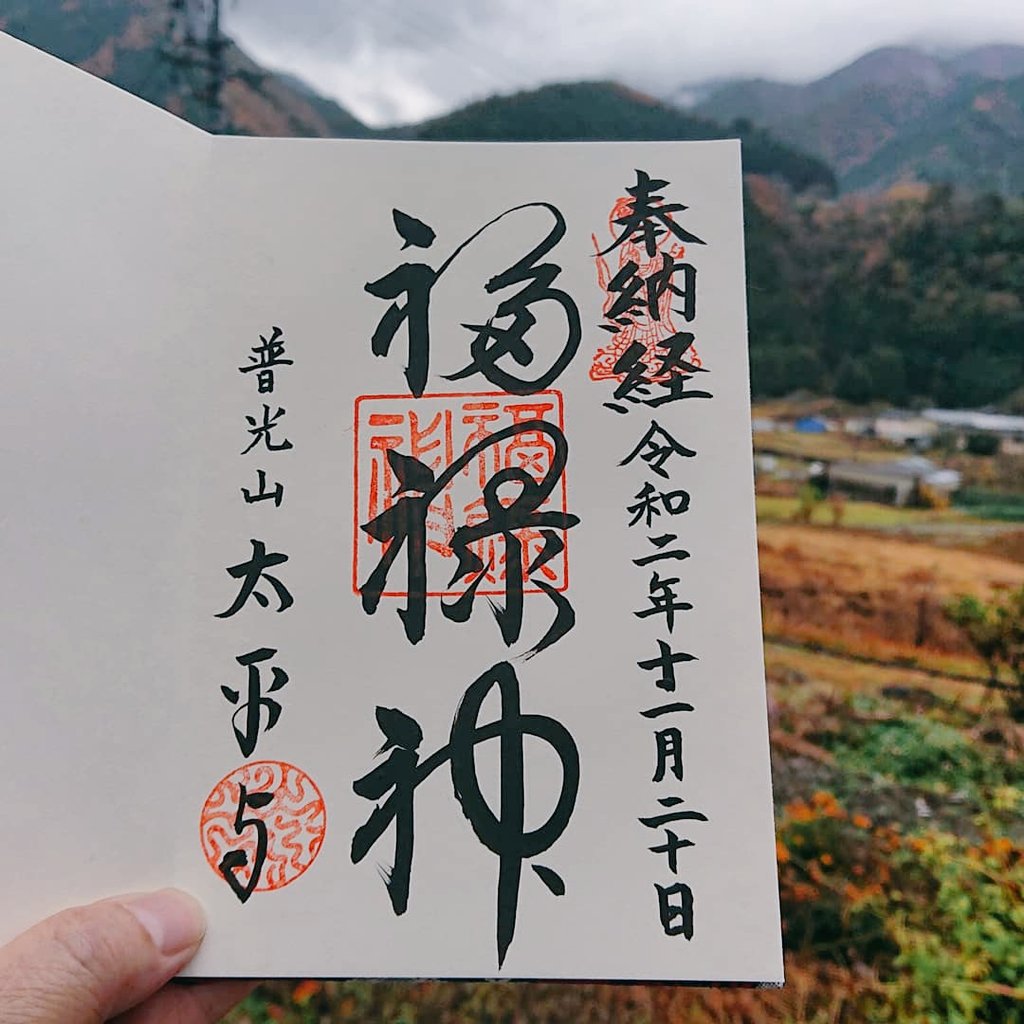 奉納経 令和二年十一月二十日
福禄神
普光山 太平寺
福禄神